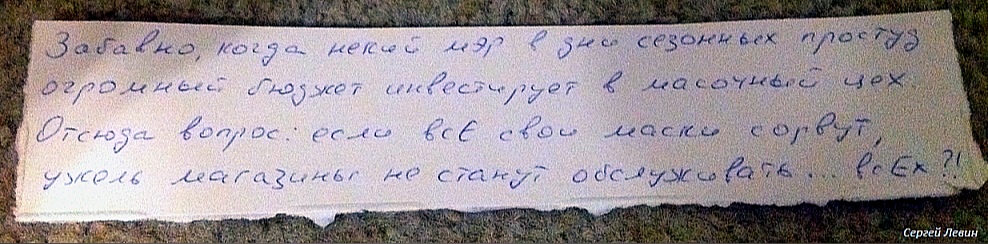 Забавно, когда некий мэр в дни сезонных простуд
огромный бюджет инвестирует в масочный цех.
Отсюда вопрос: если всЕ свои маски сорвут,
ужель магазины не станут обслуживать... всЕх?!
Сергей Левин